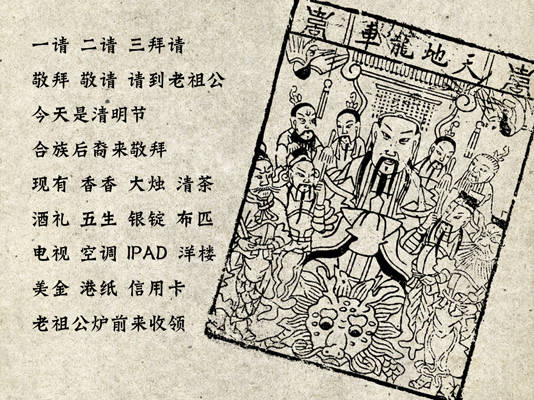 一请 二请 三拜请
敬拜 敬请 请到老祖公
今天是清明节
合族后裔来敬拜
现有 香香 大烛 清茶
酒礼 五生 银锭 布匹
电视 空调 IPAD 洋楼
美金 港纸 信用卡
老祖公炉前来收领
車龍地天